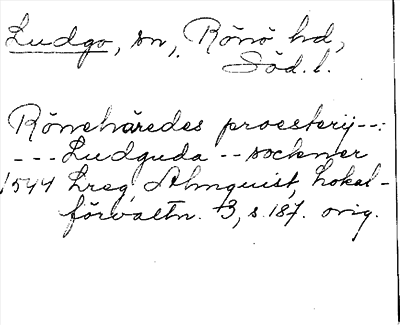 Ludgo, sn, Rönö hd,
Söd. l.
Rönehäredes proesterij--:
--- Ludguda -- sockner
1544 Lreg, Almquist, Lokal-
förvaltn. 3, s. 187. orig.